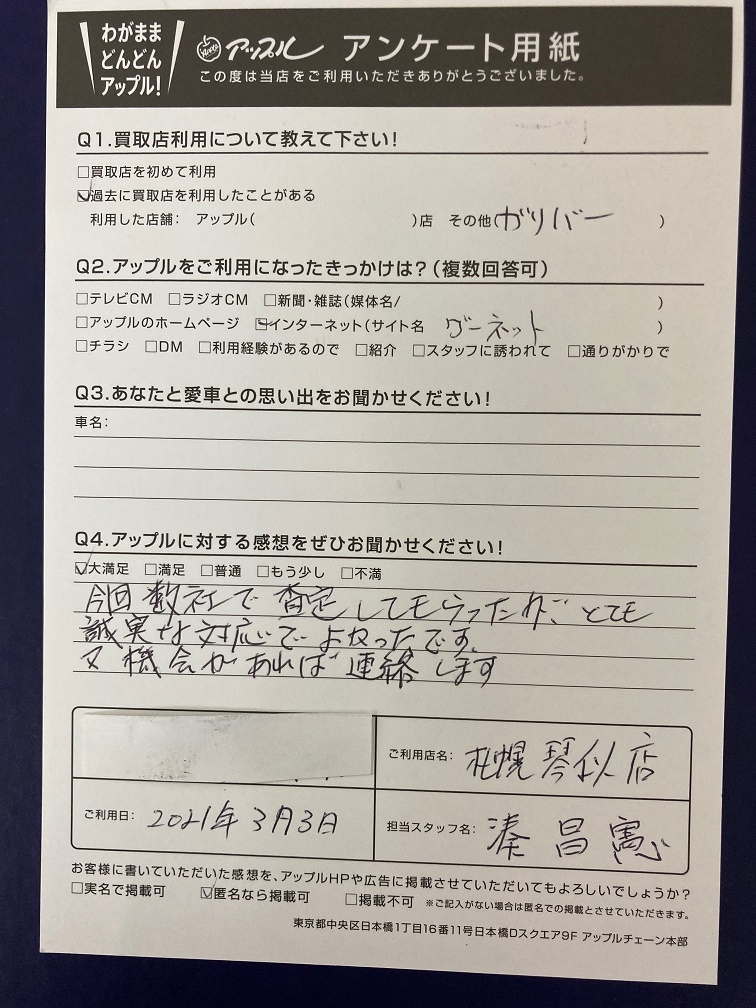 わがまま
どんどん
アップル!
Apple アップル アンケート用紙
この度は当店をご利用いただきありがとうございました。
Q1.買取店利用について教えて下さい!
□買取店を初めて利用
☑過去に買取店を利用したことがある
利用した店舗: アップル( )店 その他(ガリバー )
Q2.アップルをご利用になったきっかけは?(複数回答可)
□テレビCM □ラジオCM □新聞・雑誌(媒体名/ )
□アップルのホームページ ☑インターネット(サイト名 グーネット )
□チラシ □DM □利用経験があるので □紹介 □スタッフに誘われて □通りがかりで
Q3.あなたと愛車との思い出をお聞かせください!
車名:
Q4.アップルに対する感想をぜひお聞かせください!
☑大満足 □満足 □普通 □もう少し □不満
今回数社で査定してもらったれどとても
誠実な対応でよかったです。
又機会があれば連絡します
ご利用店名: 札幌琴似店
ご利用日: 2021年3月3日
担当スタッフ名: 湊昌憲
お客様に書いていただいた感想を、アップルHPや広告に掲載させていただいてもよろしいでしょうか?
□実名で掲載可 ☑匿名なら掲載可 □掲載不可 ※ご記入がない場合は匿名での掲載とさせていただきます。
東京都中央区日本橋1丁目16番11号日本橋Dスクエア9F アップルチェーン本部